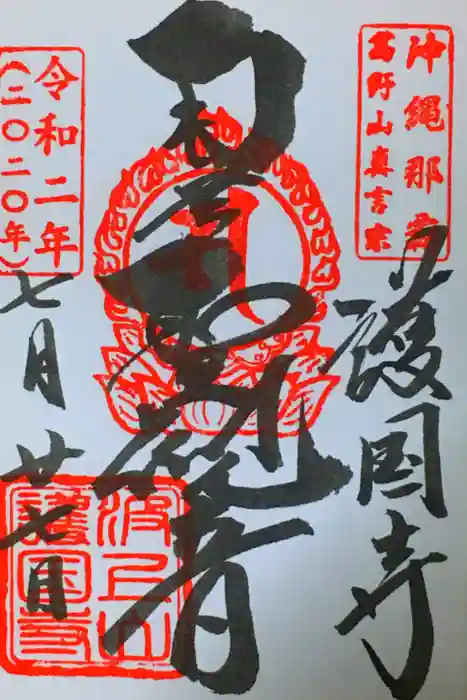 沖縄那覇
高野山真言宗
護国寺
聖観音
令和二年
(二〇二〇年)
七月廿七日
波上山
護国寺